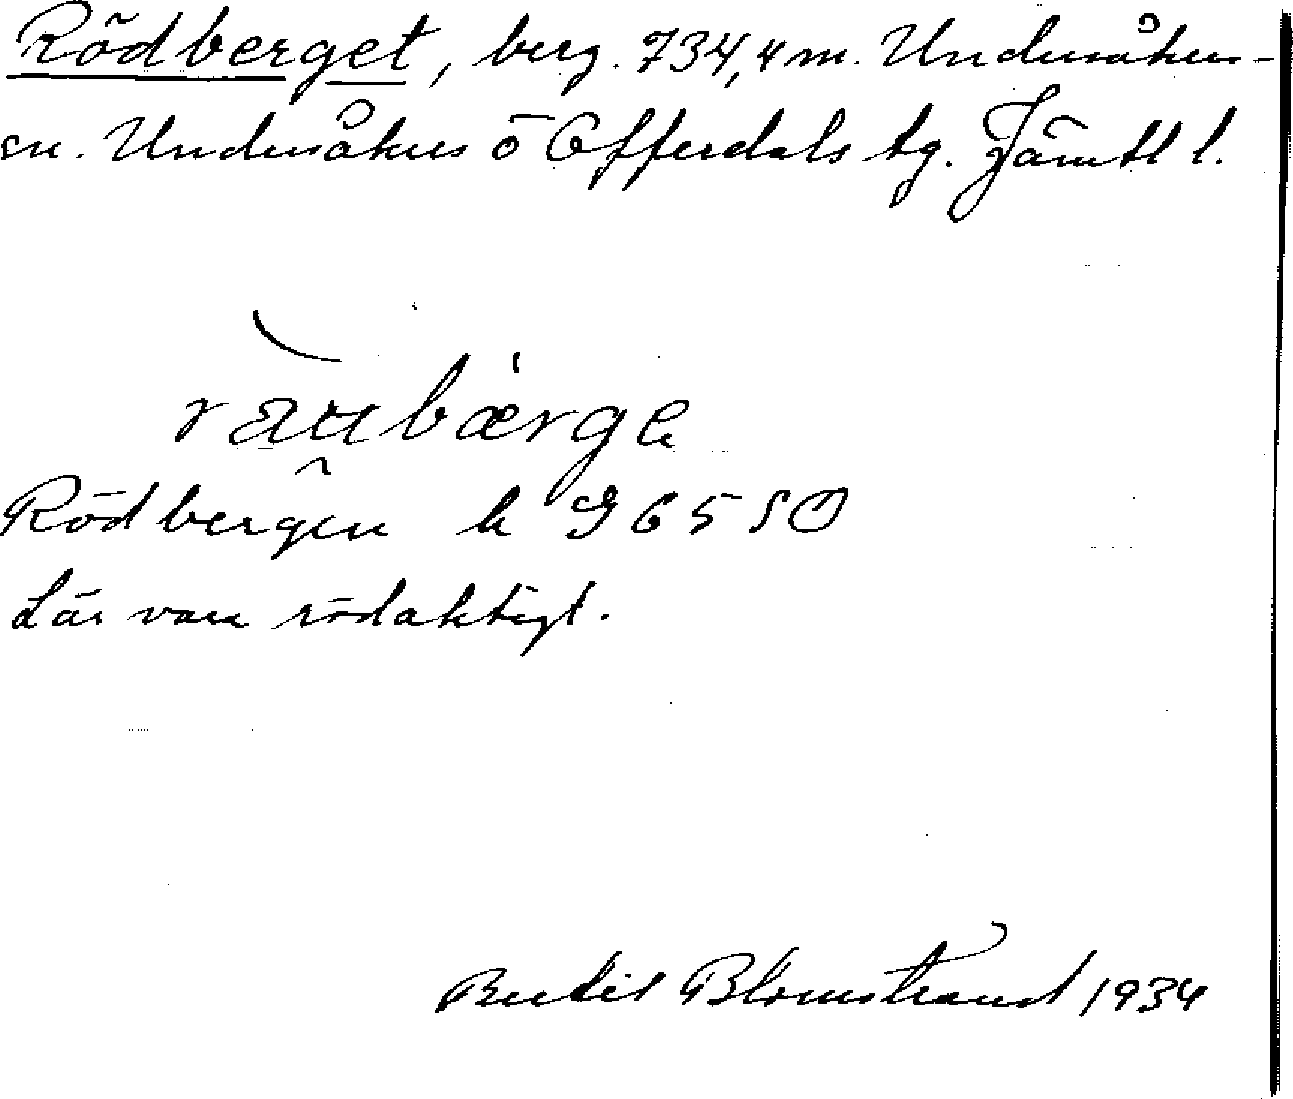 Rödberget, berg. 734,4 m. Undersåkers-
sn. Undersåkers o Offerdals tg. Jämtl l.
raubærge
Rödbergen k G 65 SO
Lär vara rödaktigt.
Bertil Blomstrand 1934